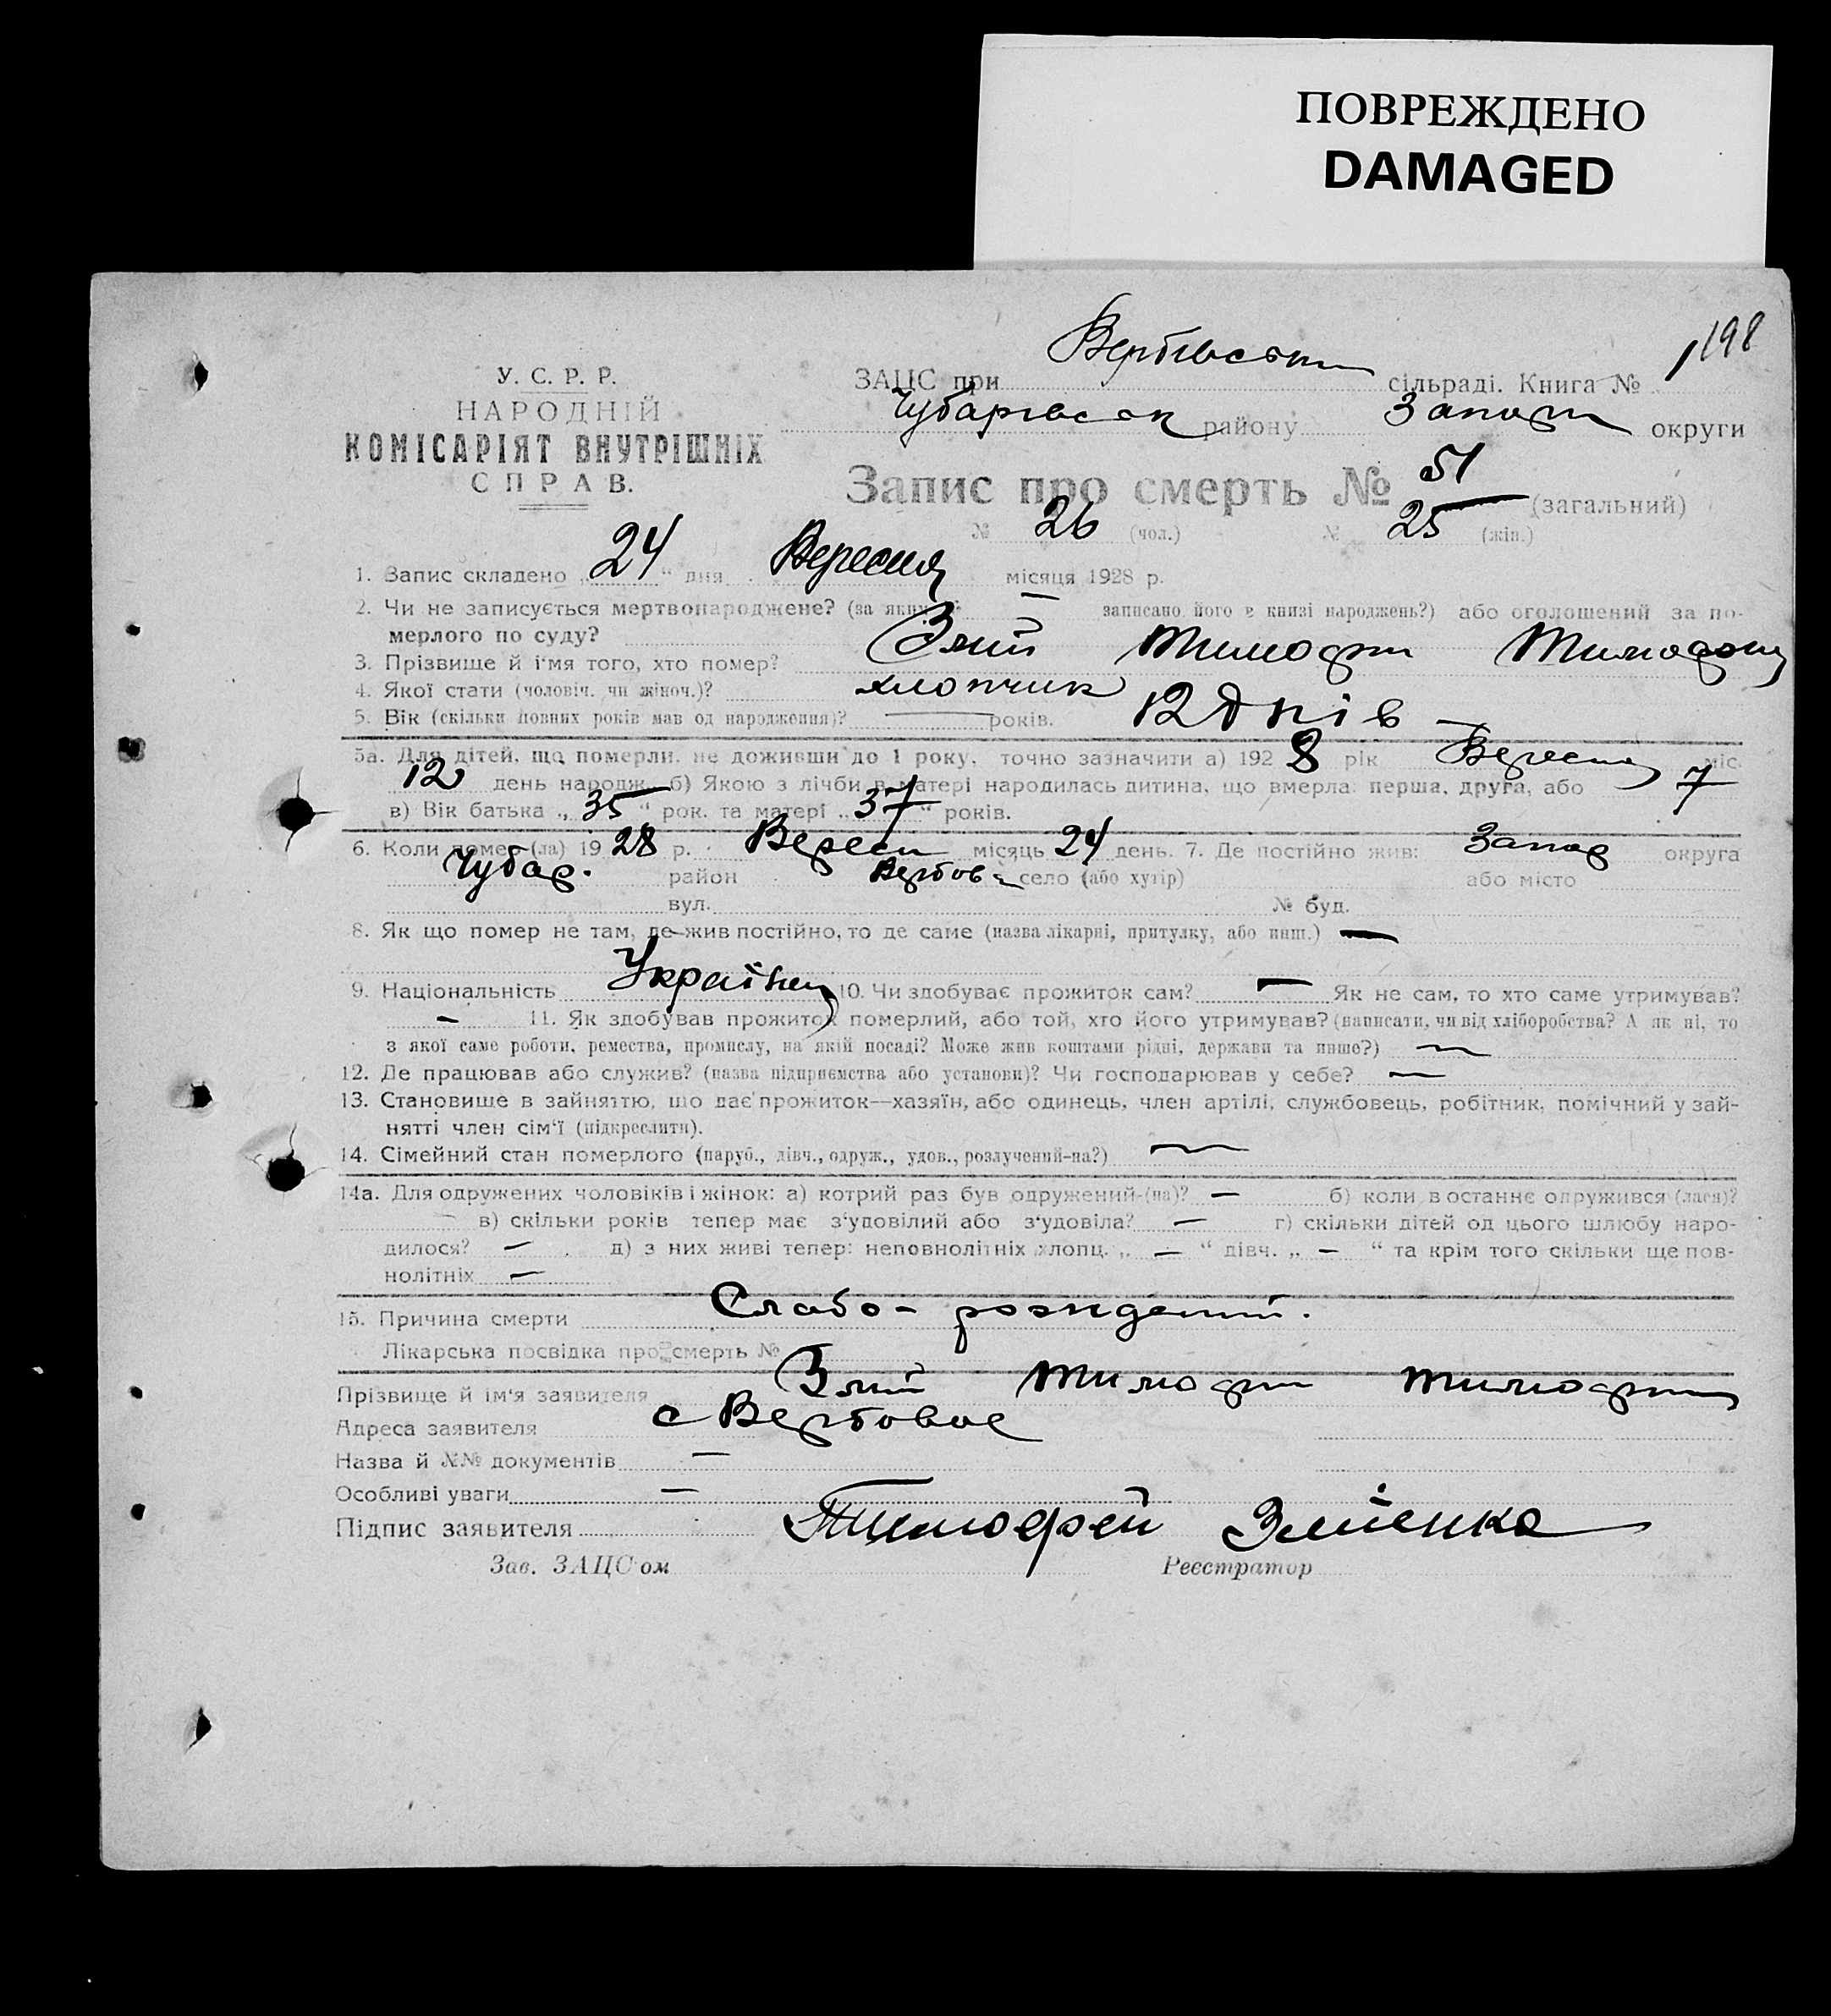 ПОВРЕЖДЕНО
DAMAGED
198
У. С. Р. Р.
НАРОДНІЙ
КОМІСАРІЯТ ВНУТРІШНІХ
СПРАВ.
ЗАЦС при Вербівськ сільраді. Книга №
Чубарівськ району Запоріж округи
Запис про смерть № 51 (загальний)
№ 26 (чол.) № 25 (жін.)
1. Запис складено „24“ дня Вересня місяця 1928 р.
2. Чи не записується мертвонароджене? (за яким № — записано його в книзі народжень?) або оголошений за по-
мерлого по суду?
3. Прізвище й ім'я того, хто помер? Змій Тимофій
4. Якої стати (чоловіч. чи жіноч.)? хлопчик
5. Вік (скільки повних років мав од народження)? — років. 12 днів —
5а. Для дітей, що померли, не доживши до 1 року, точно зазначити а) 1928 рік Вересня міс.
12 день народж. б) Якою з лічби в матері народилась дитина, що вмерла: перша, друга, або 7
в) Вік батька „35“ рок. та матері „37“ років.
6. Коли помер (ла) 1928 р. Вересн місяць 24 день. 7. Де постійно жив: Запор округа
Чубар. район Вербове село (або хутір) або місто
вул. № буд.
8. Як що помер не там, де жив постійно, то де саме (назва лікарні, притулку, або инш.) —
9. Національність Українец 10. Чи здобуває прожиток сам? — Як не сам, то хто саме утримував?
— 11. Як здобував прожиток померлий, або той, хто його утримував? (написати, чи від хліборобства? А як ні, то
з якої саме роботи, ремества, промислу, на якій посаді? Може жив коштами рідні, держави та инше?) —
12. Де працював або служив? (назва підприємства або установи)? Чи господарював у себе? —
13. Становище в зайняттю, що дає прожиток—хазяїн, або одинець, член артілі, службовець, робітник, помічний у зай-
нятті член сім'ї (підкреслити).
14. Сімейний стан померлого (паруб., дівч., одруж., удов., розлучений-на?) —
14а. Для одружених чоловіків і жінок: а) котрий раз був одружений-(на)? — б) коли в останнє одружився (лася)?
— в) скільки років тепер має з'удовілий або з'удовіла? — г) скільки дітей од цього шлюбу наро-
дилося? — д) з них живі тепер: неповнолітніх хлопц. „—“ дівч. „—“ та крім того скільки ще пов-
нолітніх —
15. Причина смерти Слабо-рожденний.
Лікарська посвідка про смерть №
Прізвище й ім'я заявителя Змій Тимофій
Адреса заявителя с Вербовое
Назва й №№ документів —
Особливі уваги —
Підпис заявителя Тимофей Змієнко
Зав. ЗАЦС'ом Реєстратор